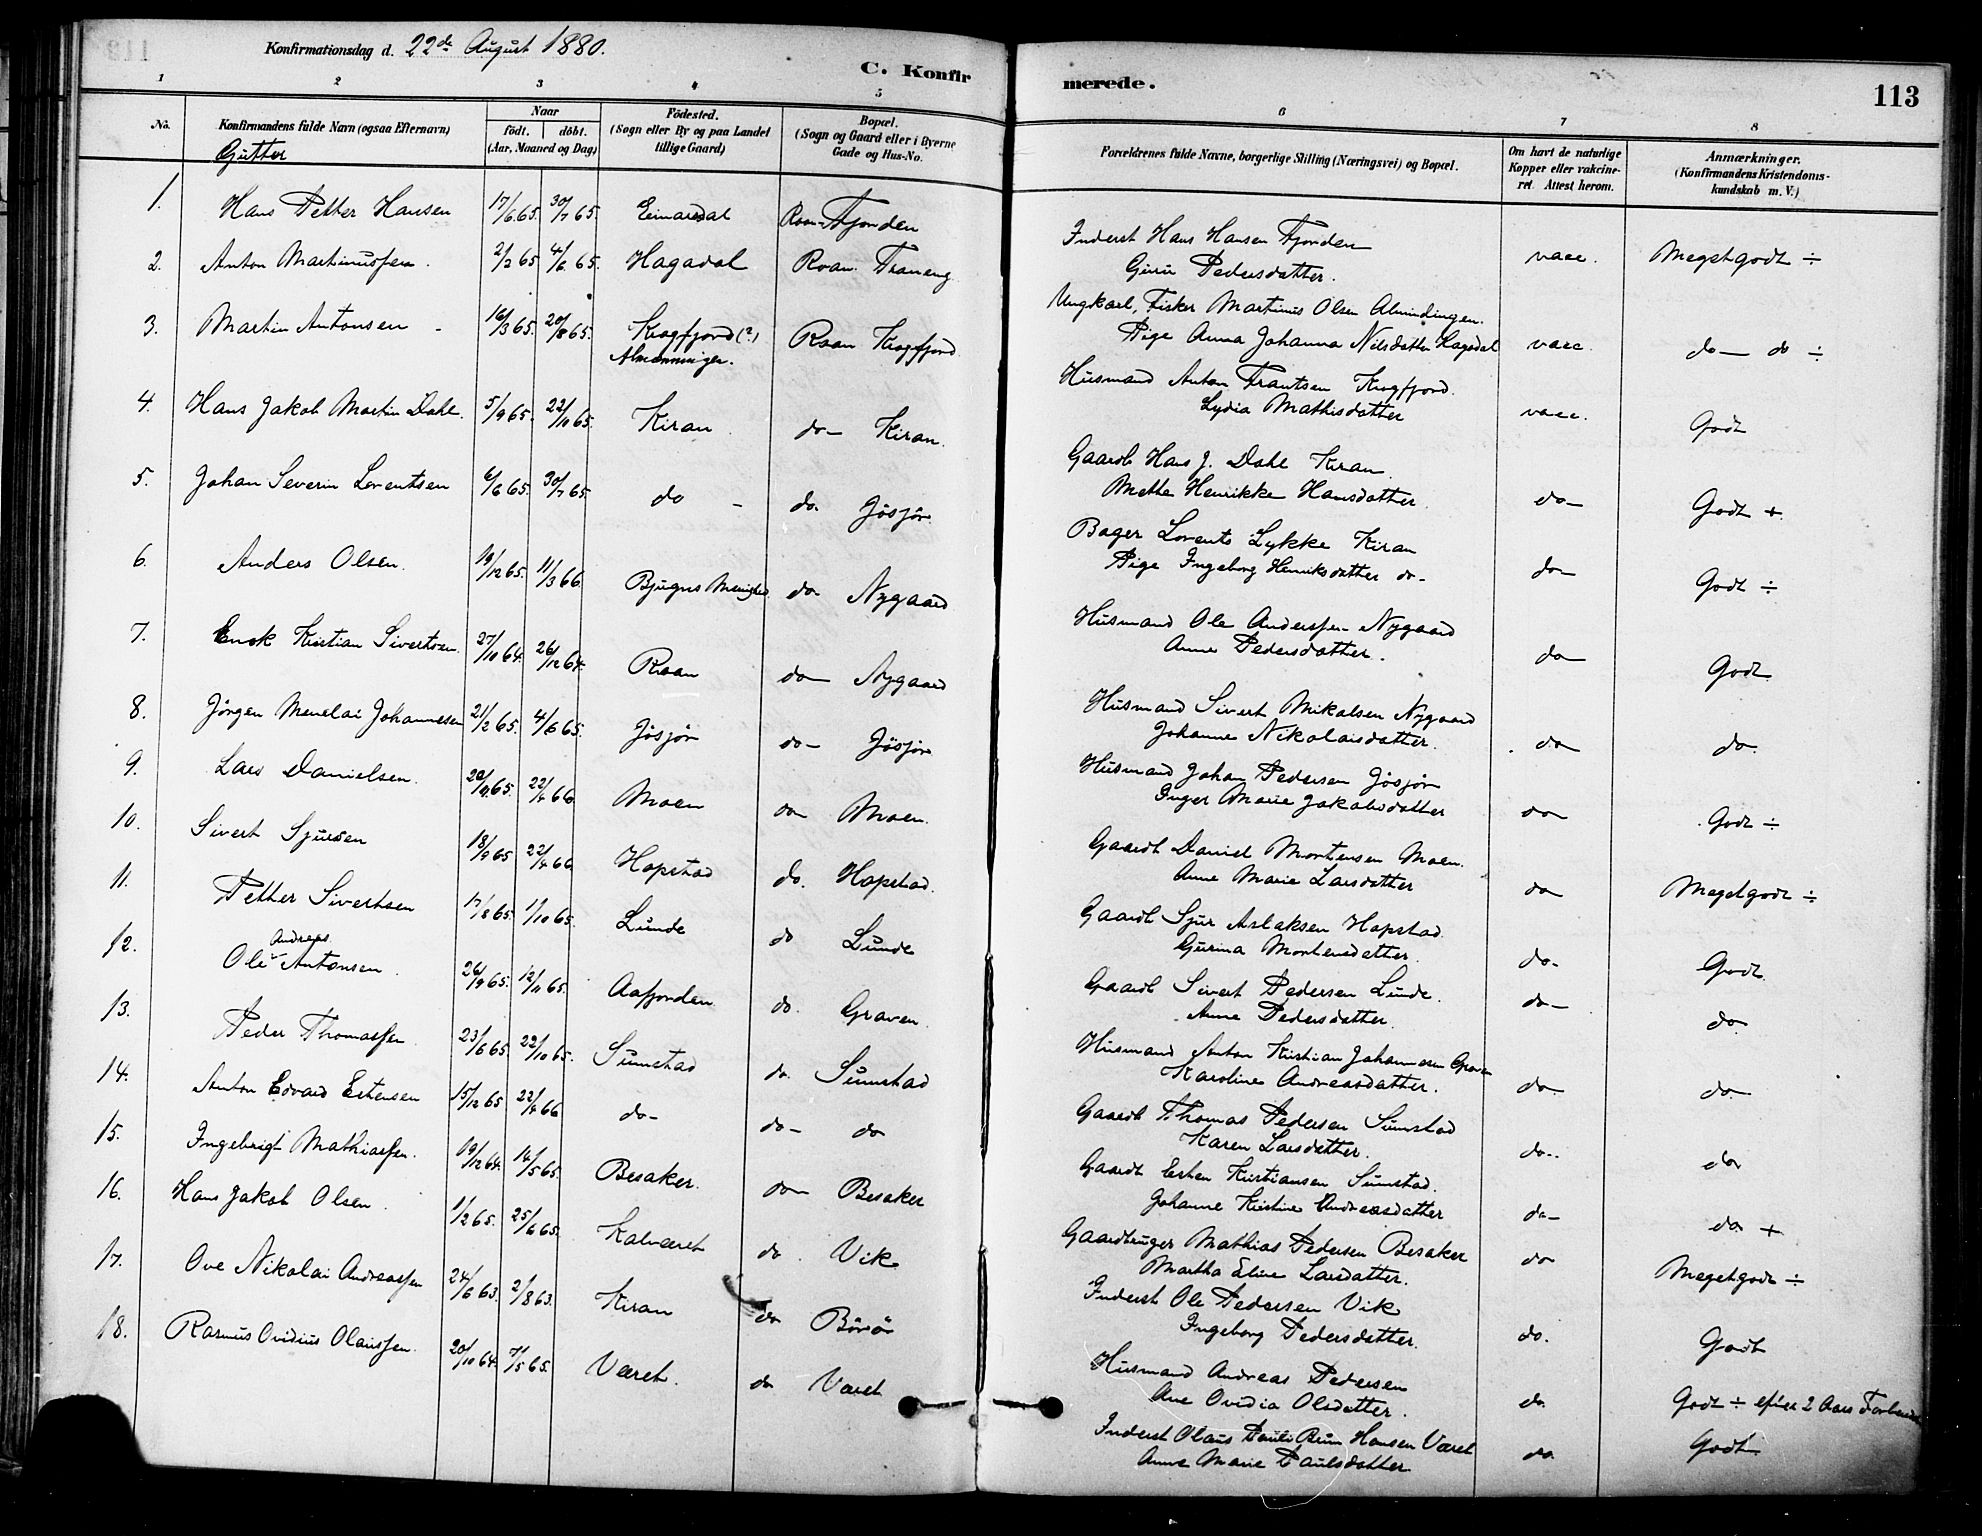 Konfirmationsdag d. 22de August 1880.
C. Konfir
merede.
113
1 2 3 4 5 6 7 8
No. Konfirmandens fulde Navn (ogsaa Efternavn) Naar födt. döbt. (Aar, Maaned og Dag) Födested. (Sogn eller By og paa Landet tillige Gaard) Bopæl. (Sogn og Gaard eller i Byerne Gade og Hus-No.
Forældrenes fulde Navne, borgerlige Stilling (Næringsvei) og Bopæl. Om havt de naturlige Kopper eller vakcineret. Attest herom. Anmærkninger. (Konfirmandens Kristendomskundskab m. V.)
Gutter
1. Hans Petter Hansen 17/6 65. 30/7 65. Einarsdal Roan Fjorden
Inderst Hans Hansen Fjorden vacc. Megetgodt ÷
Guru Pedersdatter.
2. Anton Martinussen. 2/2 65 4/6 65. Hagadal Roan. Traneng
Ungkarl, Fisker Martinus Olsen Almindingen.
Pige Anna Johanna Nilsdatter Hagadal vacc. do - do ÷
3. Martin Antonsen - 16/3 65. 20/8 65. Krogfjord (?) Almenningen. Roan Krogfjord
Husmand Anton Frantsen Krogfjord.
Lydia Mathisdatter vacc. Godt
4. Hans Jakob Martin Dahl. 5/9 65. 22/10 65. Kiran do - Kiran.
Gaardb Hans J. Dahl Kiran
Mette Henrikke Hansdatter. do - Godt +
5. Johan Severin Lorentsen 6/6 65. 30/7 65. do - do. Jösjör
Bager Lorents Lykke Kiran
Pige Ingeborg Henriksdatter do - do - Godt ÷
6. Anders Olsen. 19/12 65. 11/3 66. Bjugns Menighed do Nygaard
Husmand Ole Anderssen Nygaard
Anne Pedersdatter. do - Godt
7. Enok Kristian Sivertsen. 27/10 64. 26/12 64. Roan do - Nygaard
Husmand Sivert Mikalsen Nygaard
Johanne Nikolaisdatter. do do.
8. Jörgen Menelai Johannesen 21/2 65. 4/6 65. Jösjör do - Jösjör
Husmand Johan Pedersen Jösjör
Inger Marie Jakobsdatter do Godt ÷
9. Lars Danielsen. 65. 22/4 66 Moen do Moen.
Gaardb Daniel Mortensen Moen.
Anne Marie Larsdatter do Megetgodt ÷
10. Sivert Sjursen 18/9 65 22/4 66 Hopstad do. Hopstad.
Gaardb Sjur Aslaksen Hopstad.
Gurina Mortensdatter. do - Godt
11. Petter Sivertsen 17/8 65. 1/10 65. Lunde do Lunde
Gaardb Sivert Pedersen Lunde.
Anne Pedersdatter. do - do
12. Ole Andreas Antonsen. 26/9 65. 12/11 65. Aafjorden do. Graven.
Husmand Anton Kristian Johannesen Graven
Karoline Andreasdatter. do. do.
13. Peder Thomassen. 23/6 65. 22/10 65. Sumstad do. Sumstad
Gaardb Thomas Pedersen Sumstad
Karen Larsdatter. do.. do
14. Anton Edvard Estensen 15/12 65 22/4 66 do - do - do
Gaardb Esten Kristiansen Sumstad.
Johanne Kristine Andreasdatter do - do +
15. Ingebrigt Mathiassen. 19/12 64. 14/5 65. Besaker. do Besaker
Gaardbruger Mathias Pedersen Besaker
Martha Eline Larsdatter. do Megetgodt ÷
16. Hans Jakob Olsen. 1/2 65. 25/6 65. Kalværet do. Vik
Inderst Ole Pedersen Vik
Ingeborg Pedersdatter. do. Godt
17. Ove Nikolai Andreassen 24/6 63. 2/8 63. Kiran do Börör
Husmand Andreas Pedersen
Ane Ovidia Olsdatter. do. Godt ÷ efter 2 Aars
18. Rasmus Ovidius Olaussen. 20/10 64. 7/5 65. Været. do Været
Inderst Olaus Hansen Været
Anne Marie Paulsdatter do. Godt